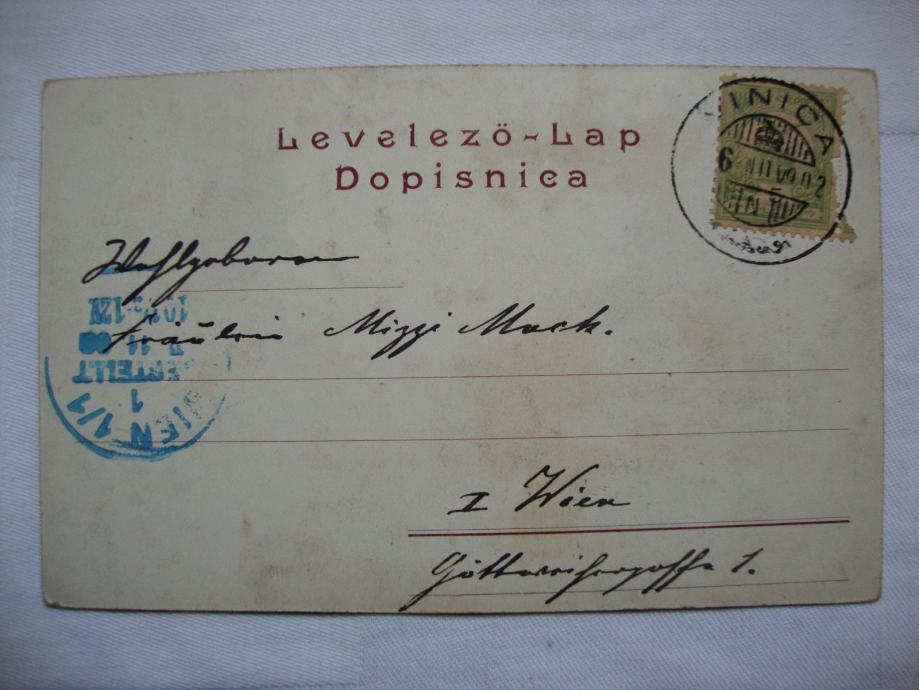 Levelező-Lap
Dopisnica
VINICA
Wohlgeboren
Fräulein Mizzi Mack.
WIEN 1/1
1
BESTELLT
I Wien
Göttweihergasse 1.